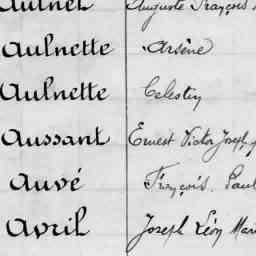 Aulnet Auguste François
Aulnette Arsène
Aulnette Celestin
Aussant Ernest Victor Joseph
Auvé François Paul
Avril Joseph Léon Mari